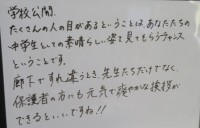 学校公開。
たくさんの人の目があるということは、あなたたちの
中学生としての素晴らしい姿を見てもらうチャンス
ということです。
廊下ですれ違うとき、先生たちだけでなく、
保護者の方にも元気で爽やかな挨拶が
できるといいですね!!